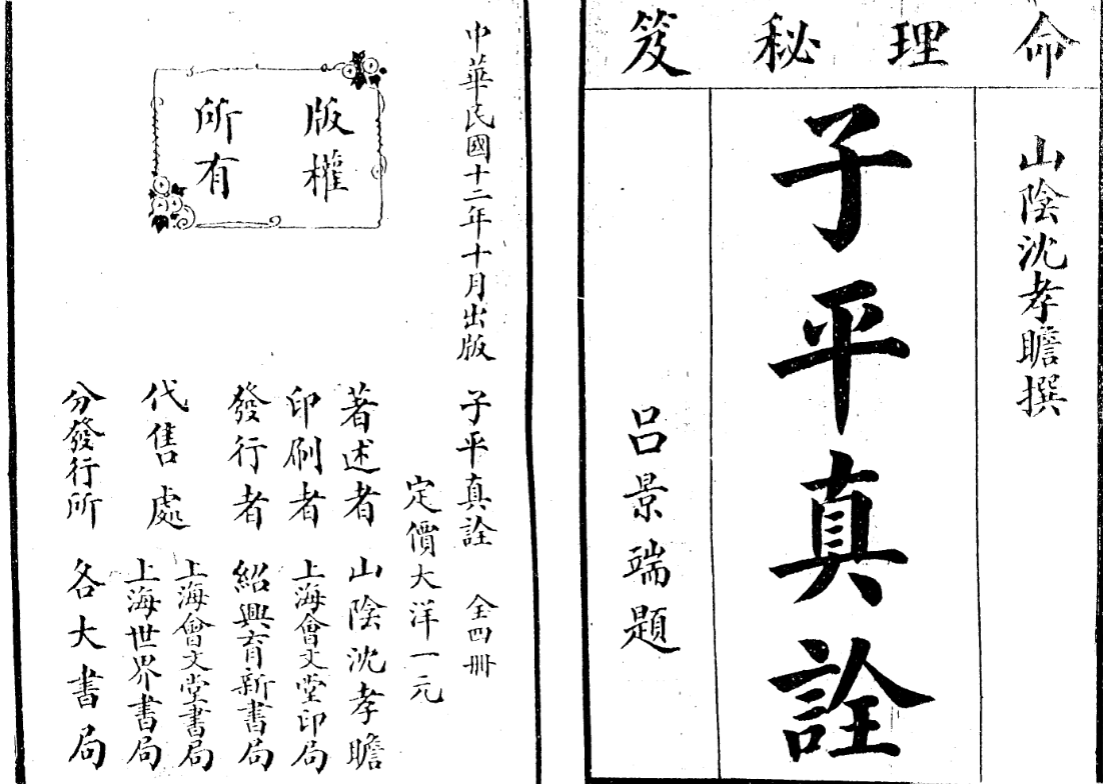 命理秘笈
山陰沈孝瞻撰
子平真詮
呂景端題
中華民國十二年十月出版
子平真詮 全四冊
定價大洋一元
版權
所有
著述者 山陰沈孝瞻
印刷者 上海會文堂印局
發行者 紹興育新書局
代售處 上海會文堂書局
上海世界書局
分發行所 各大書局